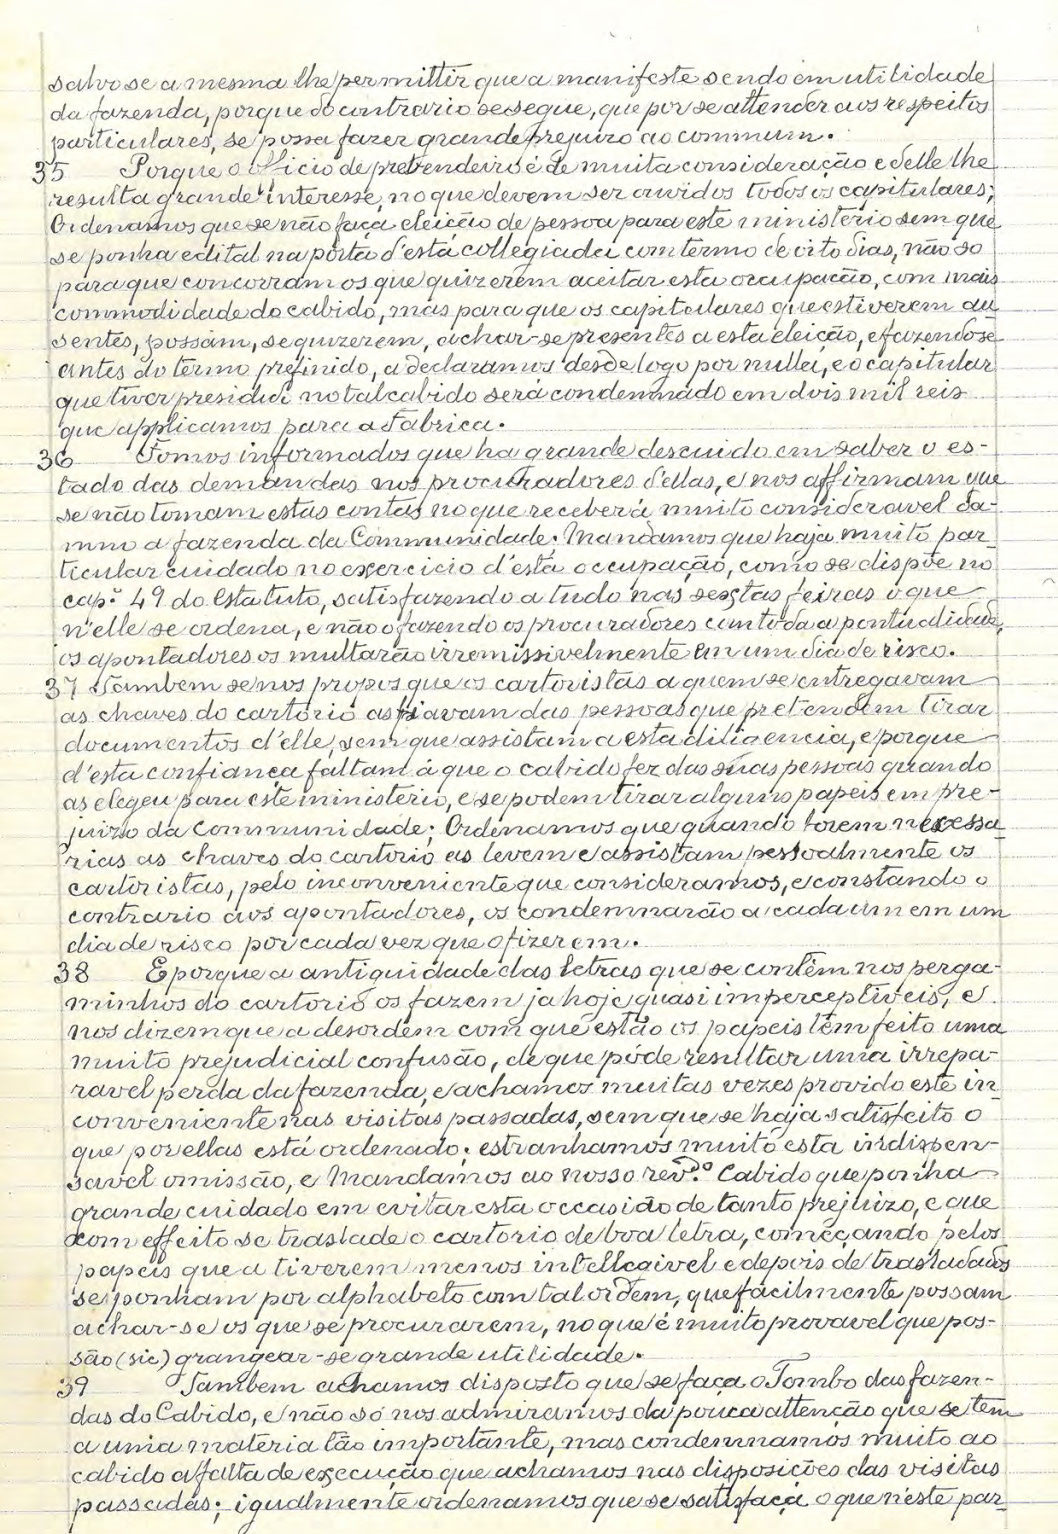 salvo se a mesma lhe permittir que a manifeste sendo em utilidade
da fazenda, porque do contrario se segue, que por se attender aos respeitos
particulares, se possa fazer grande prejuizo ao commum.
35 Porque o officio de prebendeiro é de muita consideração e delle lhe
resulta grande interesse, no que devem ser ouvidos todos os capitulares;
Ordenamos que se não faça eleição de pessoa para este ministerio sem que
se ponha edital na porta d'esta collegiada com termo de oito dias, não só
para que concorram os que quizerem aceitar esta occupação, com mais
commodidade do cabido, mas para que os capitulares que estiverem au-
sentes, possam, se quizerem, achar-se presentes a esta eleição, e fazendo-se
antes do termo prefinido, a declaramos desde logo por nulla, e o capitular
que tiver presidido no tal cabido será condemnado em dois mil reis
que applicamos para a Fabrica.
36 Fomos informados que ha grande descuido em saber o es-
tado das demandas nos procuradores d'ellas, e nos affirmam que
se não tomam estas contas no que receberá muito consideravel da-
mno a fazenda da Communidade. Mandamos que haja muito par-
ticular cuidado no exercicio d'esta occupação, como se dispõe no
cap.º 49 do Estatuto, satisfazendo a tudo nas sextas feiras o que
n'elle se ordena, e não o fazendo os procuradores com toda a pontualidade,
os apontadores os multarão irremissivelmente em um dia de risco.
37 Tambem se nos propos que os cartoristas a quem se entregavam
as chaves do cartorio as fiavam das pessoas que pretendem tirar
documentos d'elle, sem que assistam a esta diligencia, e porque
d'esta confiança faltam á que o cabido fez das suas pessoas quando
as elegeu para este ministerio, e se podem tirar alguns papeis em pre-
juizo da Communidade; Ordenamos que quando forem necessa-
rias as chaves do cartorio as levem e assistam pessoalmente os
cartoristas, pelo inconveniente que consideramos, e constando o
contrario aos apontadores, os condemnarão a cada um em um
dia de risco por cada vez que o fizerem.
38 E porque a antiguidade das letras que se contêm nos perga-
minhos do cartorio os fazem ja hoje quasi imperceptiveis, e
nos dizem que a desordem com que estão os papeis têm feito uma
muito prejudicial confusão, de que póde resultar uma irrepa-
ravel perda da fazenda, e achamos muitas vezes provido este in-
conveniente nas visitas passadas, sem que se haja satisfeito o
que por ellas está ordenado; estranhamos muito esta indispen-
savel omissão, e Mandamos ao nosso rev.º Cabido que ponha
grande cuidado em evitar esta occasião de tanto prejuizo, e que
com effeito se traslade o cartorio de boa letra, começando pelos
papeis que a tiverem menos intellegivel e depois de trasladados
se ponham por alphabeto com tal ordem, que facilmente possam
achar-se os que se procurarem, no que é muito provavel que pos-
são (sic) grangear-se grande utilidade.
39 Tambem achamos disposto que se faça o Tombo das fazen-
das do Cabido, e não só nos admiramos da pouca attenção que se tem
a uma materia tão importante, mas condemnamos muito ao
cabido a falta de execução que achamos nas disposições das visitas
passadas; igualmente ordenamos que se satisfaça o que n'este par-